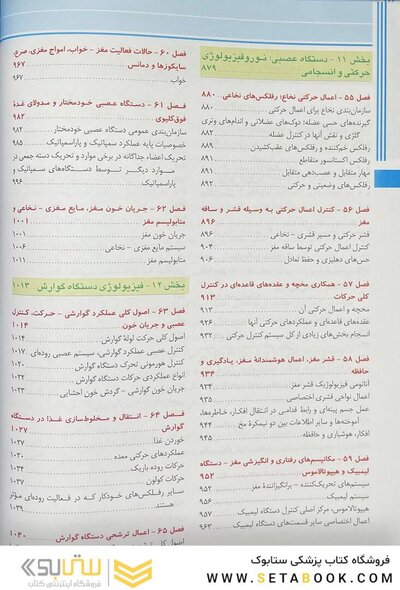 بخش ۱۱ - دستگاه عصبی: نوروفیزیولوژی
حرکتی و انسجامی ۸۷۹
فصل ۵۵ - اعمال حرکتی نخاع؛ رفلکس‌های نخاعی ۸۸۰
سازمان‌بندی نخاع برای اعمال حرکتی ۸۸۰
گیرنده‌های حسی عضله؛ دوک‌های عضلانی و اندام‌های وتری
گلژی و نقش آنها در کنترل عضله ۸۸۲
رفلکس خم‌کننده و رفلکس‌های عقب‌کشیدن ۸۸۹
رفلکس اکستانسور متقاطع ۸۹۱
مهار متقابل و عصب‌دهی متقابل ۸۹۱
رفلکس‌های وضعیتی و حرکتی ۸۹۲
فصل ۵۶ - کنترل اعمال حرکتی به وسیله قشر و ساقه
مغز ۸۹۶
قشر حرکتی و مسیر قشری - نخاعی ۸۹۶
کنترل اعمال حرکتی توسط ساقه مغز ۹۰۴
حس‌های دهلیزی و حفظ تعادل ۹۰۶
فصل ۵۷ - همکاری مخچه و عقده‌های قاعده‌ای در کنترل
کلی حرکات ۹۱۳
مخچه و اعمال حرکتی آن ۹۱۳
عقده‌های قاعده‌ای و عملکردهای حرکتی آنها ۹۲۶
انسجام بخش‌های زیادی از کل سیستم کنترل حرکتی ۹۳۲
فصل ۵۸ - قشر مغز، اعمال هوشمندانهٔ مغز، یادگیری و
حافظه ۹۳۴
آناتومی فیزیولوژیک قشر مغز ۹۳۴
اعمال نواحی قشری اختصاصی ۹۳۵
عمل جسم پینه‌ای و رابط قدامی در انتقال افکار، خاطره‌ها،
آموخته‌ها و سایر اطلاعات بین دو نیمکرهٔ مغ ۹۴۴
افکار، هوشیاری و حافظه ۹۴۵
فصل ۵۹ - مکانیسم‌های رفتاری و انگیزشی مغز - دستگاه
لیمبیک و هیپوتالاموس ۹۵۲
سیستم‌های تحریک‌کننده - برانگیزانندهٔ مغز ۹۵۲
سیستم لیمبیک ۹۵۶
هیپوتالاموس، مرکز اصلی کنترل دستگاه لیمبیک ۹۵۷
اعمال اختصاصی سایر قسمت‌های دستگاه لیمبیک ۹۶۲
فصل ۶۰ - حالات فعالیت مغز - خواب، امواج مغزی، صرع،
سایکوزها و دمانس ۹۶۷
خواب ۹۶۷
فصل ۶۱ - دستگاه عصبی خودمختار و مدولای غدهٔ
فوق‌کلیوی ۹۸۲
سازمان‌بندی عمومی دستگاه عصبی خودمختار ۹۸۲
خصوصیات پایه عملکرد سمپاتیک و پاراسمپاتیک ۹۸۵
تحریک اعضاء جداگانه در برخی موارد و تحریک دسته جمعی در
موارد دیگر توسط دستگاه‌های سمپاتیک و
پاراسمپاتیک ۹۹۶
فصل ۶۲ - جریان خون مغز، مایع مغزی - نخاعی و
متابولیسم مغز ۱۰۰۱
جریان خون مغز ۱۰۰۱
سیستم مایع مغزی - نخاعی ۱۰۰۶
متابولیسم مغز ۱۰۱۱
بخش ۱۲ - فیزیولوژی دستگاه گوارش ۱۰۱۳
فصل ۶۳ - اصول کلی عملکرد گوارشی - حرکت، کنترل
عصبی و جریان خون ۱۰۱۴
اصول کلی حرکت لولهٔ گوارش ۱۰۱۴
کنترل عصبی عملکرد گوارشی، سیستم عصبی روده‌ای ۱۰۱۷
کنترل هورمونی تحرک دستگاه گوارش
انواع عملکردی حرکات دستگاه گوارش
جریان خون گوارشی - گردش خون احشایی ۱۰۲۳
فصل ۶۴ - انتقال و مخلوط‌سازی غذا در دستگاه
گوارش ۱۰۲۷
خوردن غذا ۱۰۲۷
عملکردهای حرکتی معده ۱۰۳۰
حرکات روده باریک ۱۰۳۴
حرکات کولون ۱۰۳۷
سایر رفلکس‌های خودکار که در فعالیت روده‌ای مؤثر
هستند ۱۰۳۹
فصل ۶۵ - اعمال ترشحی دستگاه گوارش ۱۰۴۰
ستابوک
فروشگاه اینترنتی کتاب
فروشگاه کتاب پزشکی ستابوک
WWW.SETABOOK.COM